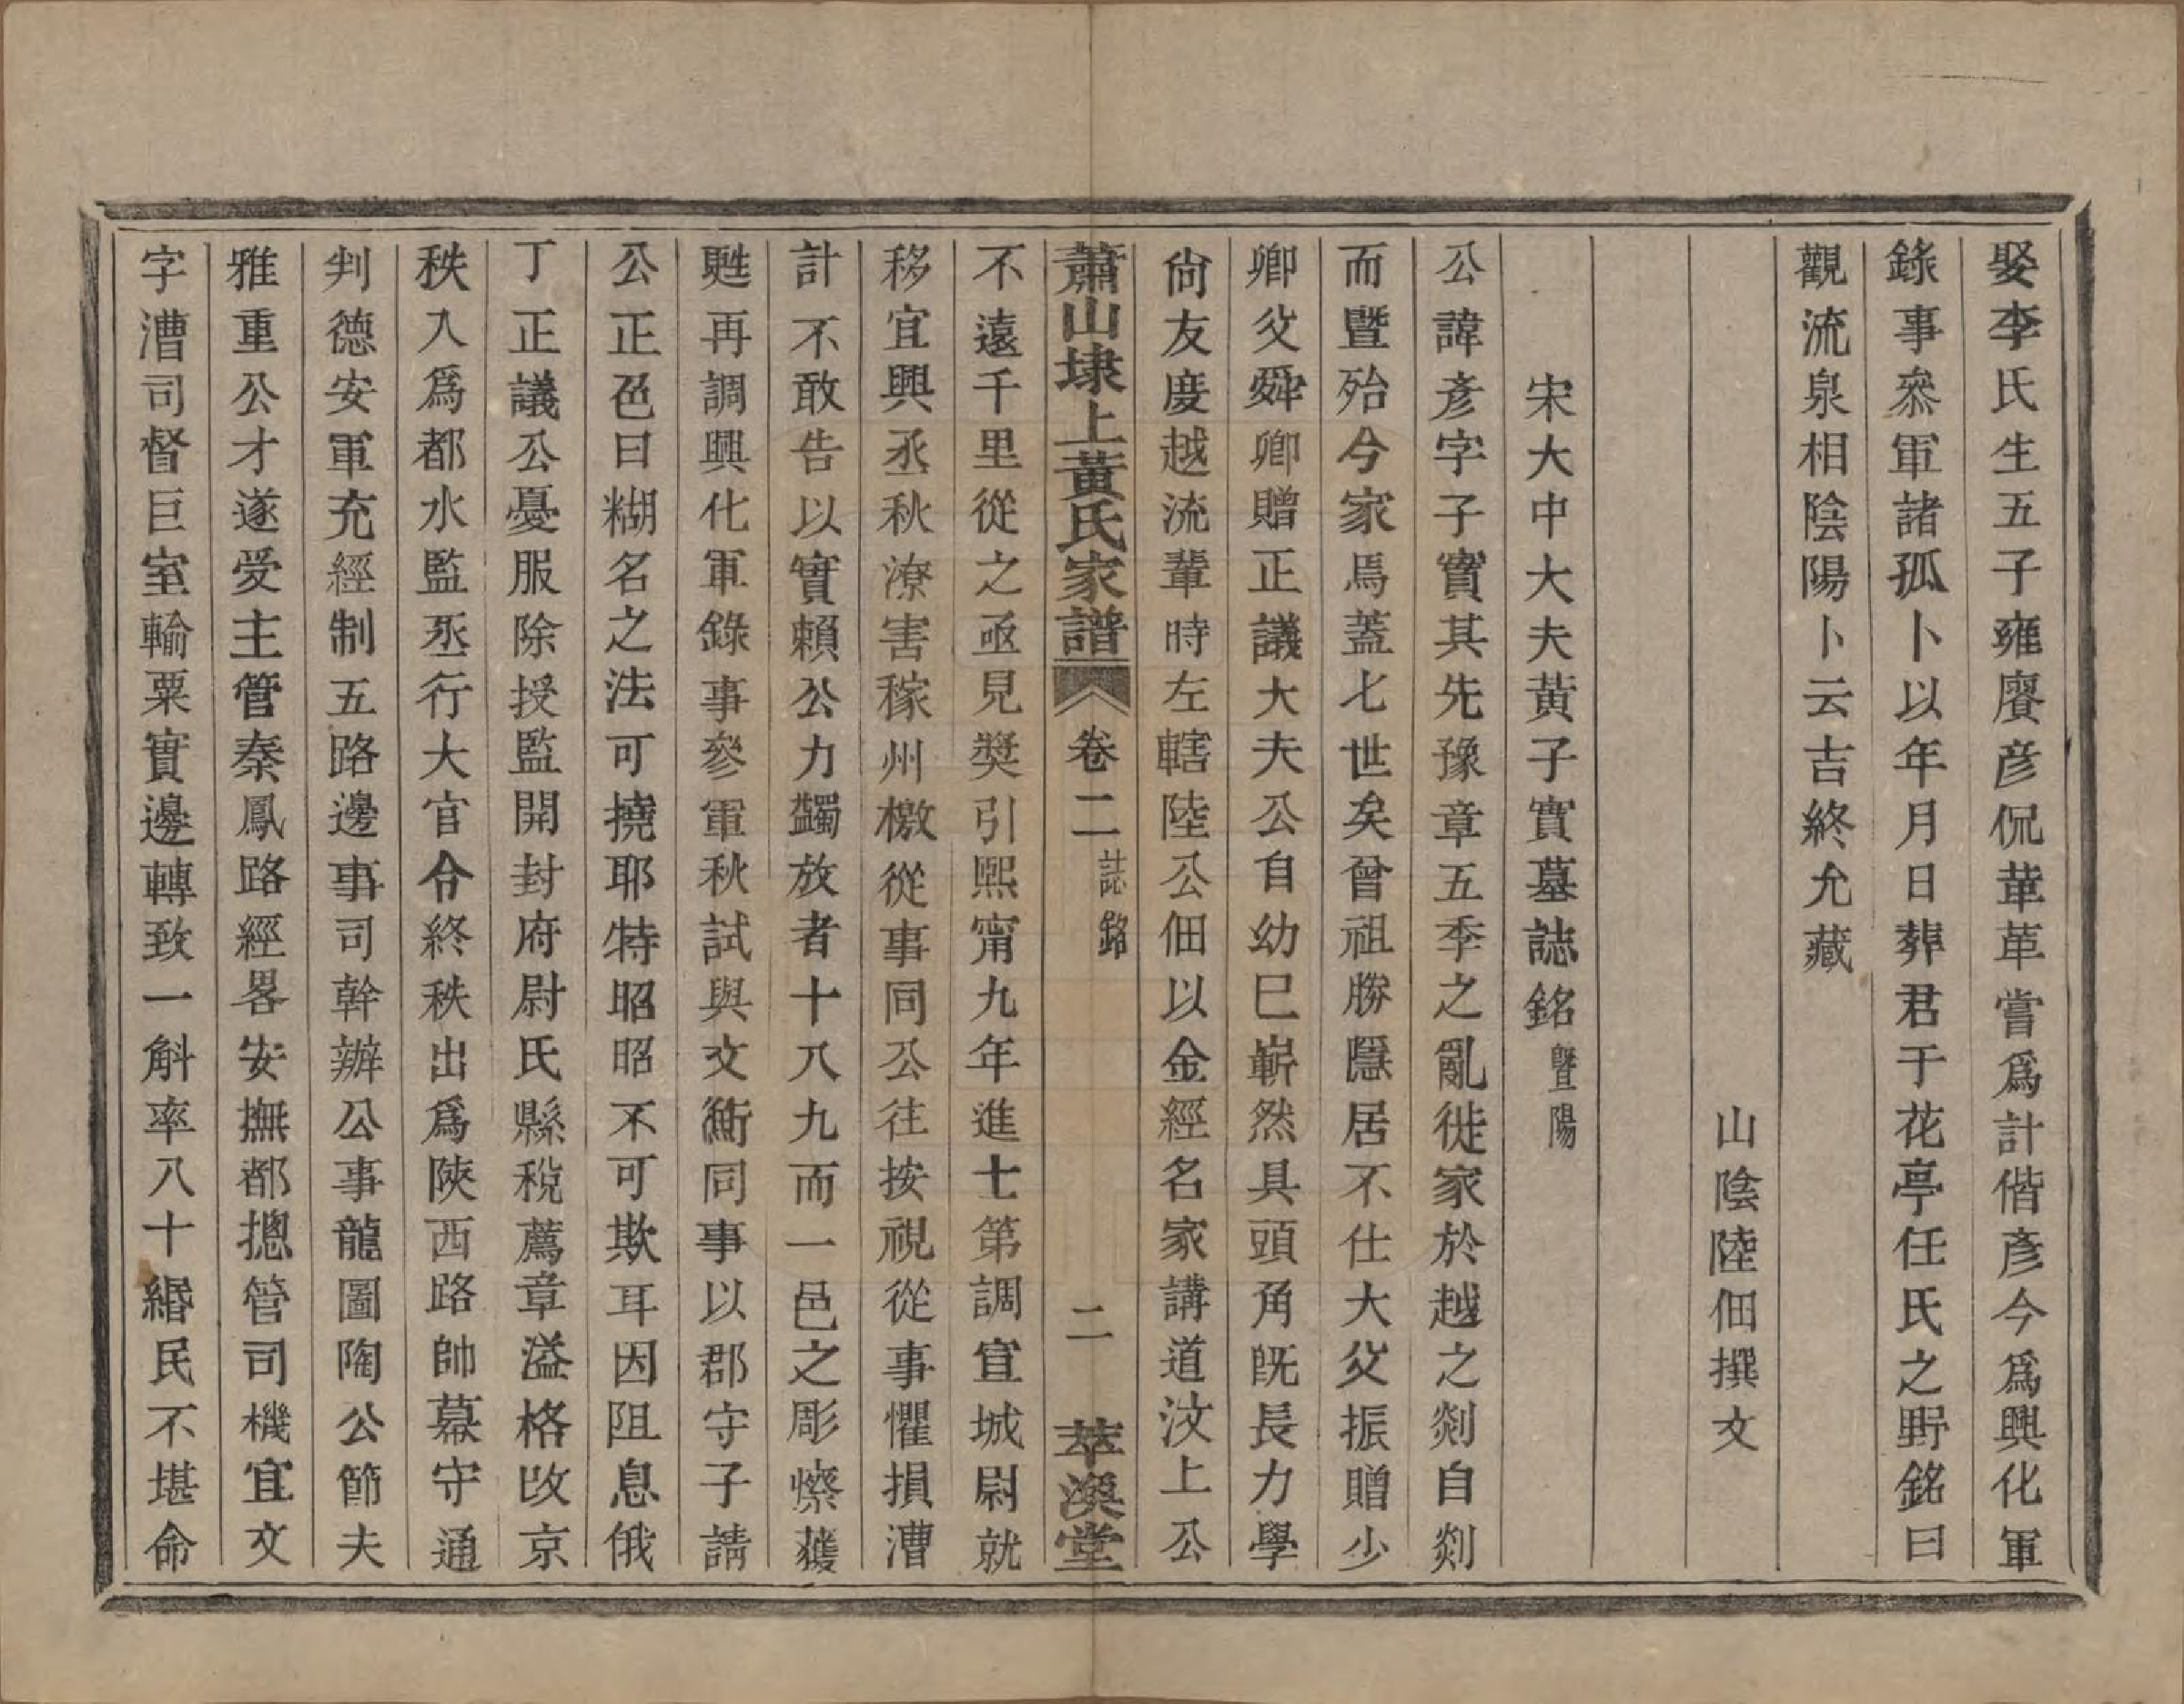 娶李氏生五子雍賡彦侃華革嘗爲計偕彥今爲興化軍
錄事叅軍諸孤卜以年月日葬君于花亭任氏之野銘曰
觀流泉相陰陽卜云吉終允藏
山陰陸佃撰文
宋大中大夫黃子實墓誌銘暨陽
公諱彥字子實其先豫章五季之亂徙家於越之剡自剡
而暨殆今家焉蓋七世矣曾祖勝隱居不仕大父振贈少
卿父舜卿贈正議大夫公自幼巳嶄然具頭角旣長力學
尙友度越流輩時左轄陸公佃以金經名家講道汶上公
蕭山埭上黃氏家譜 卷二 誌銘 二 萃渙堂
不遠千里從之亟見獎引熙甯九年進士第調宣城尉就
移宜興丞秋潦害稼州檄從事同公往按視從事懼損漕
計不敢告以實賴公力蠲放者十八九而一邑之彫瘵獲
甦再調興化軍錄事參軍秋試與文衡同事以郡守子請
公正色曰糊名之法可撓耶特昭昭不可欺耳因阻息俄
丁正議公憂服除授監開封府尉氏縣稅薦章溢格改京
秩入爲都水監丞行大官令終秩出爲陝西路帥幕守通
判德安軍充經制五路邊事司幹辦公事龍圖陶公節夫
雅重公才遂受主管秦鳳路經畧安撫都摠管司機宜文
字漕司督巨室輸粟實邊轉致一斛率八十緡民不堪命